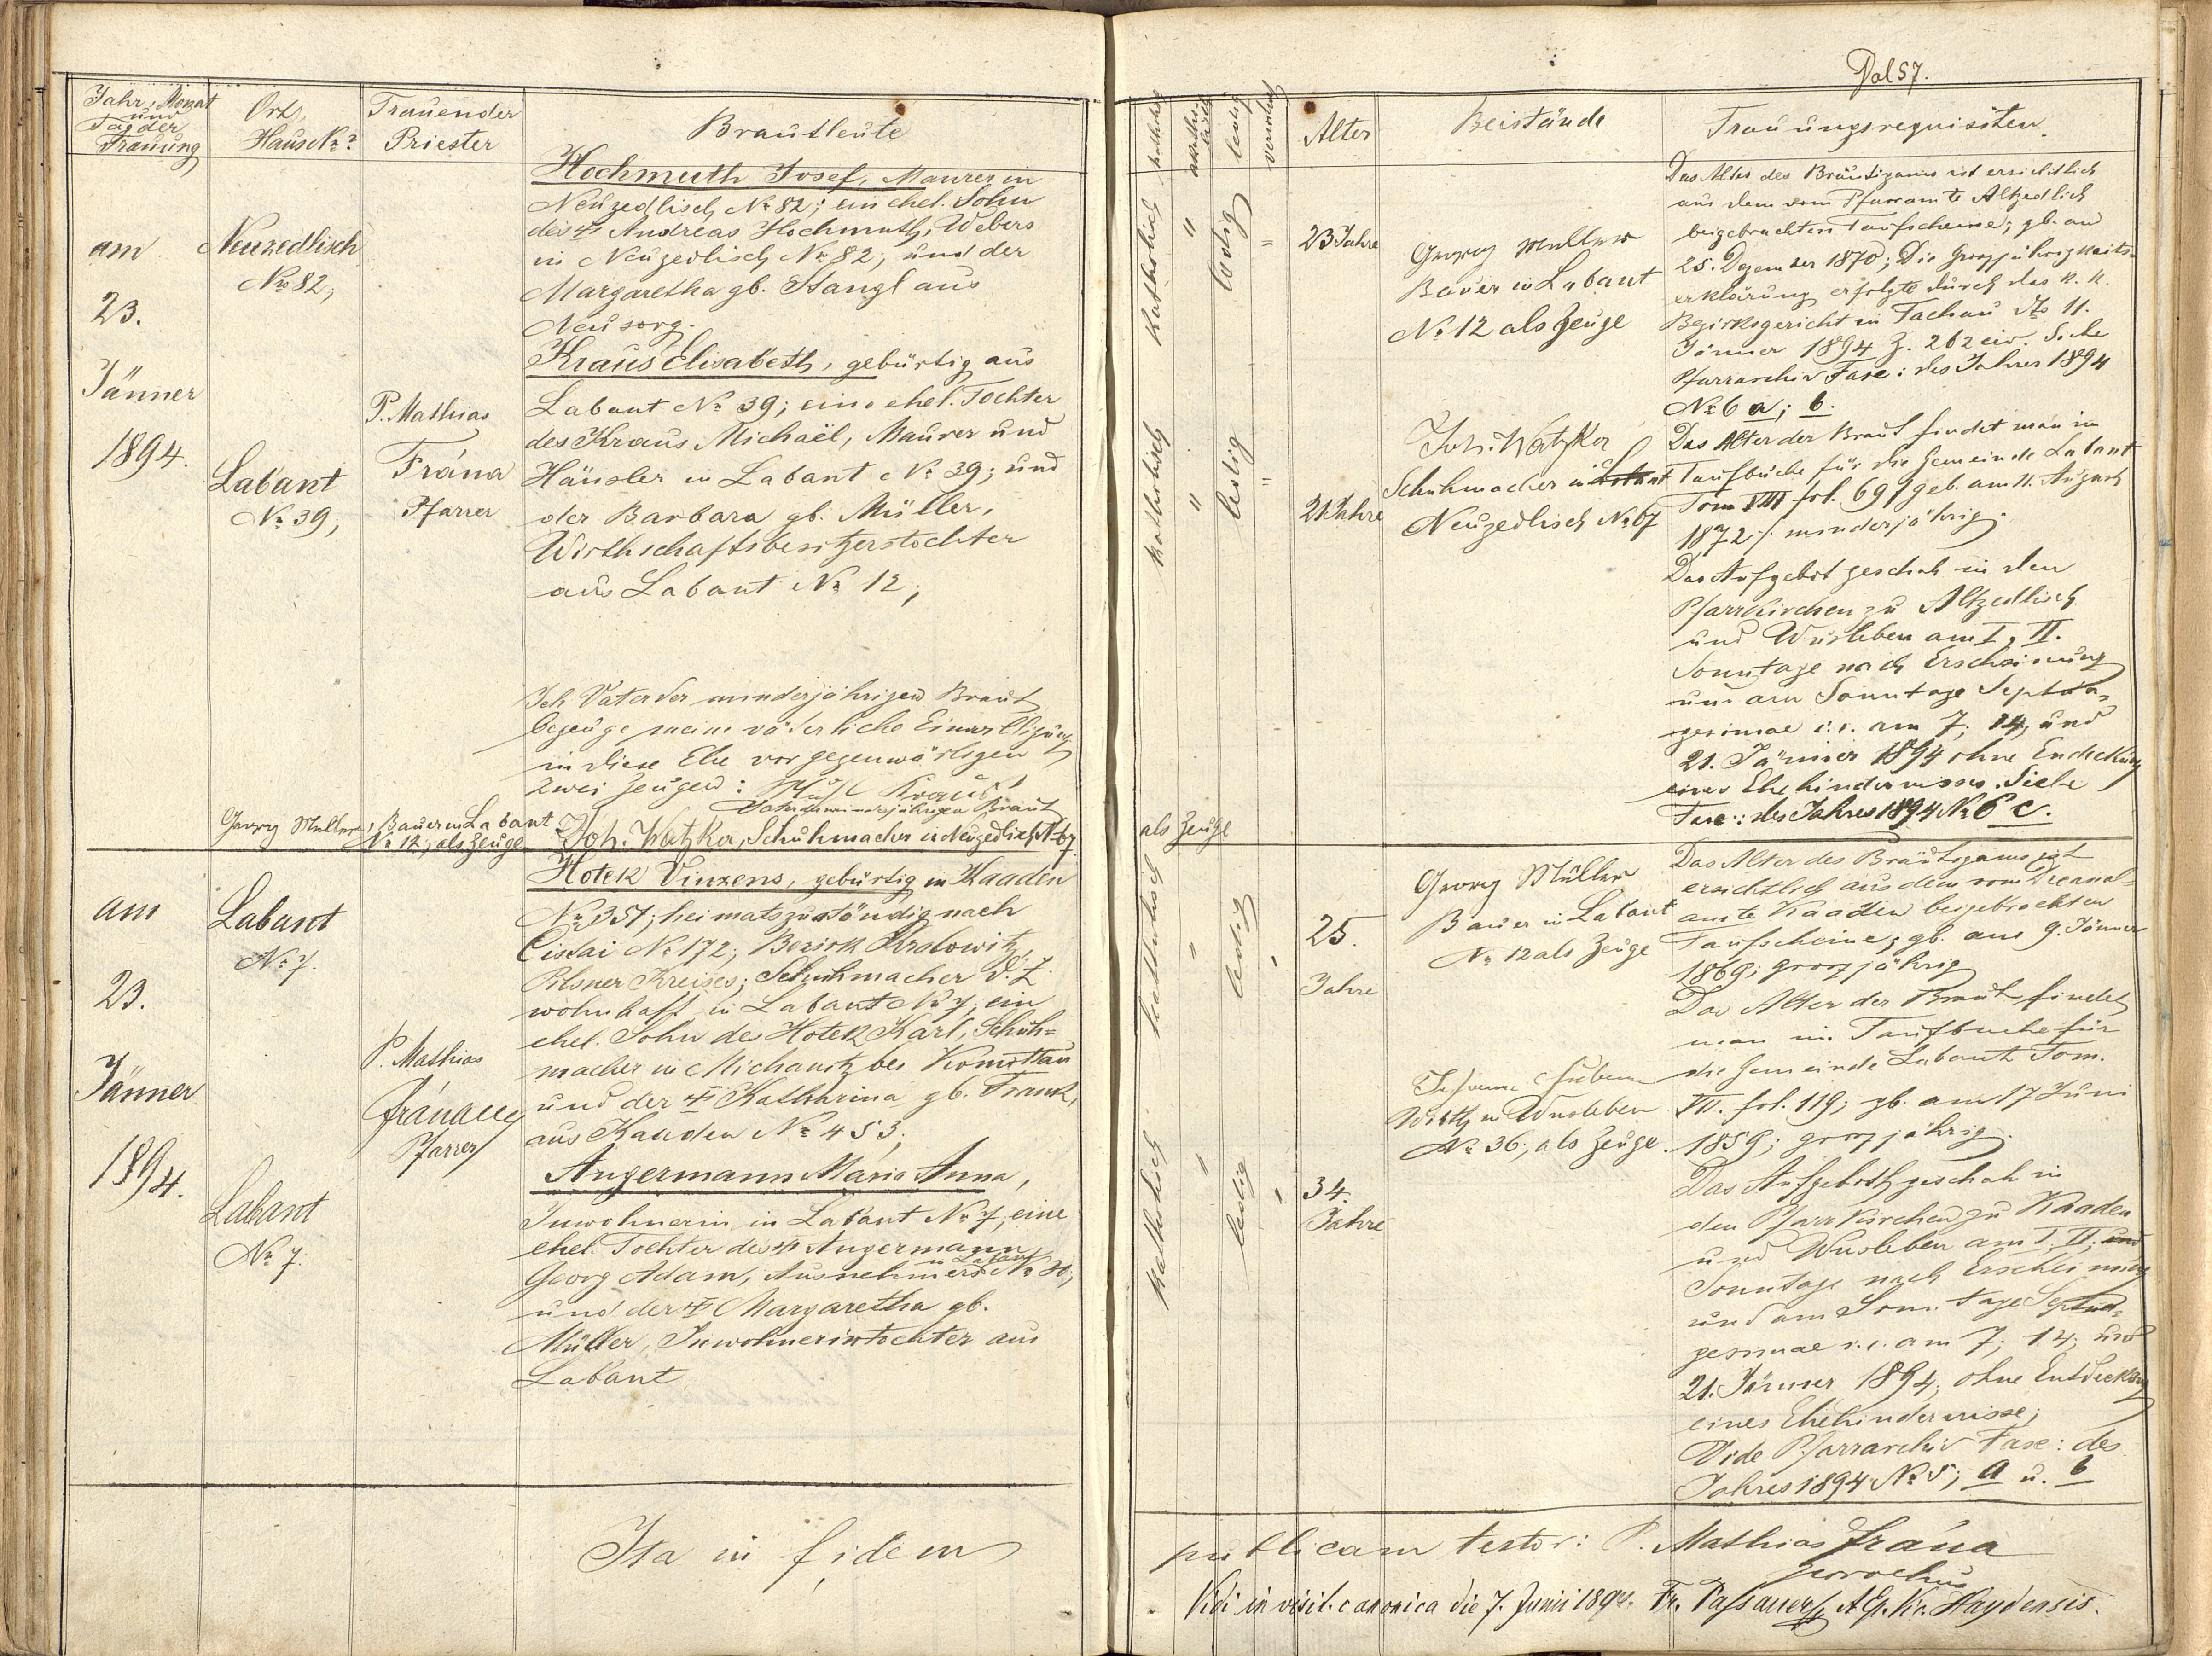 Fol 57.
Jahr, Monat
und
Tag der
Trauung
Ort,
Haus No
Trauender
Priester
Brautleute
katholisch
akatholisch
ledig
verwitwet
Alter
Beistände
Trauungsrequisiten.
am
23.
Jänner
1894.
Neuzedlisch
No 82;
Labant
No 39;
P. Mathias
Frána
Pfarrer
Hochmuth Josef, Maurer in
Neuzedlisch No 82; ein ehel. Sohn
des † Andreas Hochmuth, Webers
in Neuzedlisch No 82, und der
Margaretha gb. Stangl aus
Neusorg.
Kraus Elisabeth, gebürtig aus
Labant No 39; eine ehel. Tochter
des Kraus Michaël, Maurer und
Häusler in Labant No 39; und
der Barbara gb. Müller,
Wirthschaftsbesitzerstochter
aus Labant No 12;
Ich Vater der minderjährigen Braut
bezeuge meine väterliche Einwilligung
in diese Ehe vor gegenwärtigen
zwei Zeugen: Kraus
Vater der minderjährigen Braut
Georg Müller, Bauer in Labant
No 12, als Zeuge
Joh. Watzka, Schuhmacher in Neuzedlisch No 67
als Zeuge
katholisch
"
ledig
"
23 Jahre
katholisch
"
ledig
"
21 Jahre
Georg Müller
Bauer in Labant
No 12 als Zeuge
Joh. Watzka
Schuhmacher in Labant
Neuzedlisch No 67
Das Alter des Bräutigams ist ersichtlich
aus dem vom Pfarramte Altzedlisch
beigebrachten Taufscheine; gb. am
25. Dezember 1870; Die Grosjährigkeits-
erklärung erfolgte durch das k. k.
Bezirksgericht in Tachau dto 11.
Jänner 1894 Z. 262 civ. Siehe
Pfarrarchiv Fasc: des Jahres 1894
No 6 a; b.
Das Alter der Braut findet man im
Taufbuche für die Gemeinde Labant
Tom VIII fol. 69 / geb. am 11. August
1872 / minderjährig.
Das Aufgebot geschah in den
Pfarrkirchen zu Altzedlisch
und Wusleben am I, II.
Sonntage nach Erscheinung
und am Sonntage Septua-
gesimae i. e. am 7, 14, und
21. Jänner 1894 ohne Entdeckung
eines Ehehindernisses. Siehe
Fasc: des Jahres 1894 No 6 c.
am
23.
Jänner
1894.
Labant
No 7.
Labant
No 7.
P. Mathias
Frána
Pfarrer
Hotek Vinzens, gebürtig in Kaaden
No 357; heimatszuständig nach
Cistai No 172; Bezirk
Pilsner Kreises; Schuhmacher d. Z.
wohnhaft in Labant No 7, ein
ehel. Sohn des Hotek Karl, Schuh-
macher in Michanitz bei Komottau
und der † Kathharina gb. Frank,
aus Kaaden No 453;
Angermann Maria Anna,
Inwohnerin in Labant No 7, eine
ehel. Tochter des † Angermann
Georg Adam, Ausnehmers in Labant No 30;
und der † Margaretha gb.
Müller, Inwohnerintochter aus
Labant
katholisch
"
ledig
"
25.
Jahre
katholisch
"
ledig
"
34.
Jahre
Georg Müller
Bauer in Labant
No 12 als Zeuge
Wirth in Wusleben
No 36, als Zeuge.
Das Alter des Bräutigams ist
ersichtlich aus dem vom Decanal-
amte Kaaden beigebrachten
Taufscheine; gb. am 9. Jänner
1869; grosjährig
Das Alter der Braut findet
man im Taufbuche für
die Gemeinde Labant Tom.
VII. fol. 119; gb. am 17 Juni
1859; grosjährig.
Das Aufgeboth geschah in
den Pfarrkirchen zu Kaaden
und Wusleben am I. II. und
Sonntage nach Erscheinung
und am Sonntage Septua-
gesimae i. e. am 7; 14; und
21. Jänner 1894; ohne Entdeckung
eines Ehehindernisse;
Vide Pfarrarchiv Fasc: des
Jahres 1894 No 5; a u. b
Ita in fidem
publicam testor: P. Mathias Frána
parochus
Vidi in visit. canonica die 7. Junii 1894. Fr. Passauer Haydensis.